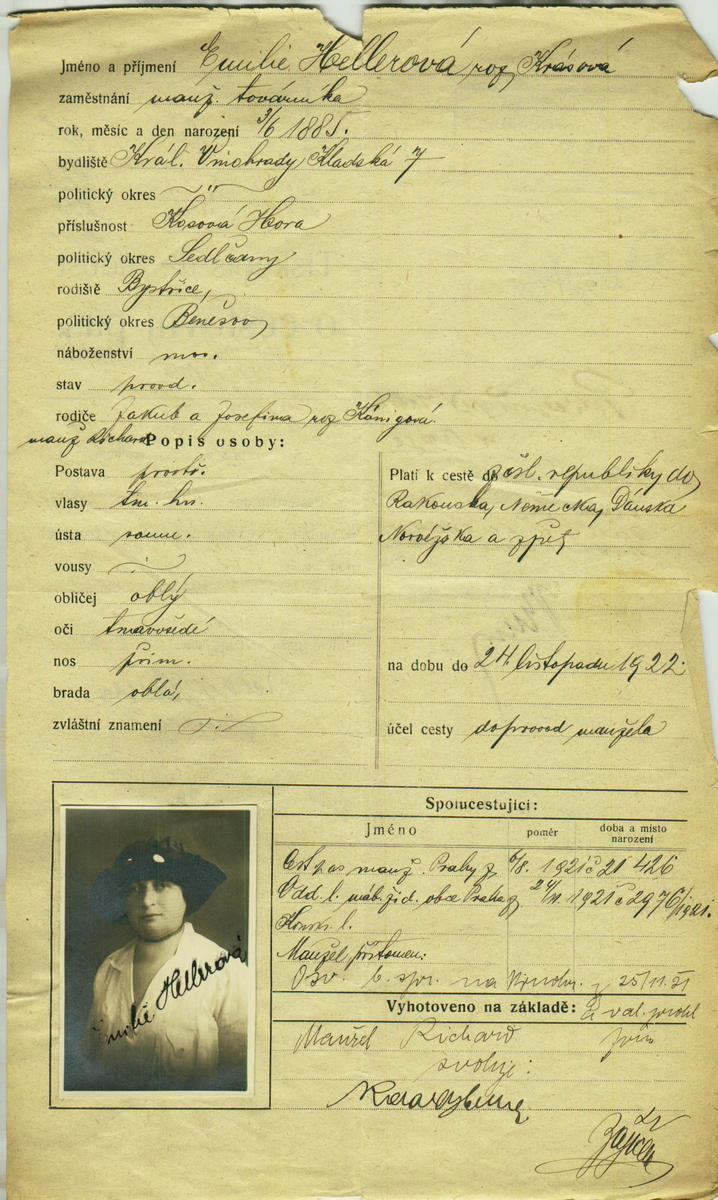 Jméno a příjmení Emilie Hellerová roz. Krásová
zaměstnání manž. továrníka
rok, měsíc a den narození 3/6 1885.
bydliště Král. Vinohrady, Kladská 7
politický okres — " —
příslušnost Kosová Hora
politický okres Sedlčany
rodiště Bystřice,
politický okres Benešov
náboženství mos.
stav provd.
rodiče Jakub a Josefina roz. Königová.
manž. Richard
Popis osoby:
Postava prostř.
vlasy tm. hn.
ústa soum.
vousy
obličej oblý
oči tmavošedé
nos přim.
brada oblá,
zvláštní znamení
Platí k cestě do čsl. republiky do
Rakouska, Německa, Dánska
Norvéžska a zpět
na dobu do 24. listopadu 1922.
účel cesty doprovod manžela
Spolucestující:
Jméno poměr doba a místo narození
Cest. pas manž. Prahy z 1921 č 21426
Odd. l. náb. žid. obce Praha z 24/11. 1921 č 2976/1921.
Manžel přítomen.
na Vinohr. z 25/11.21
Vyhotoveno na základě:
Manžel Richard
svoluje:
Emilie Hellerová